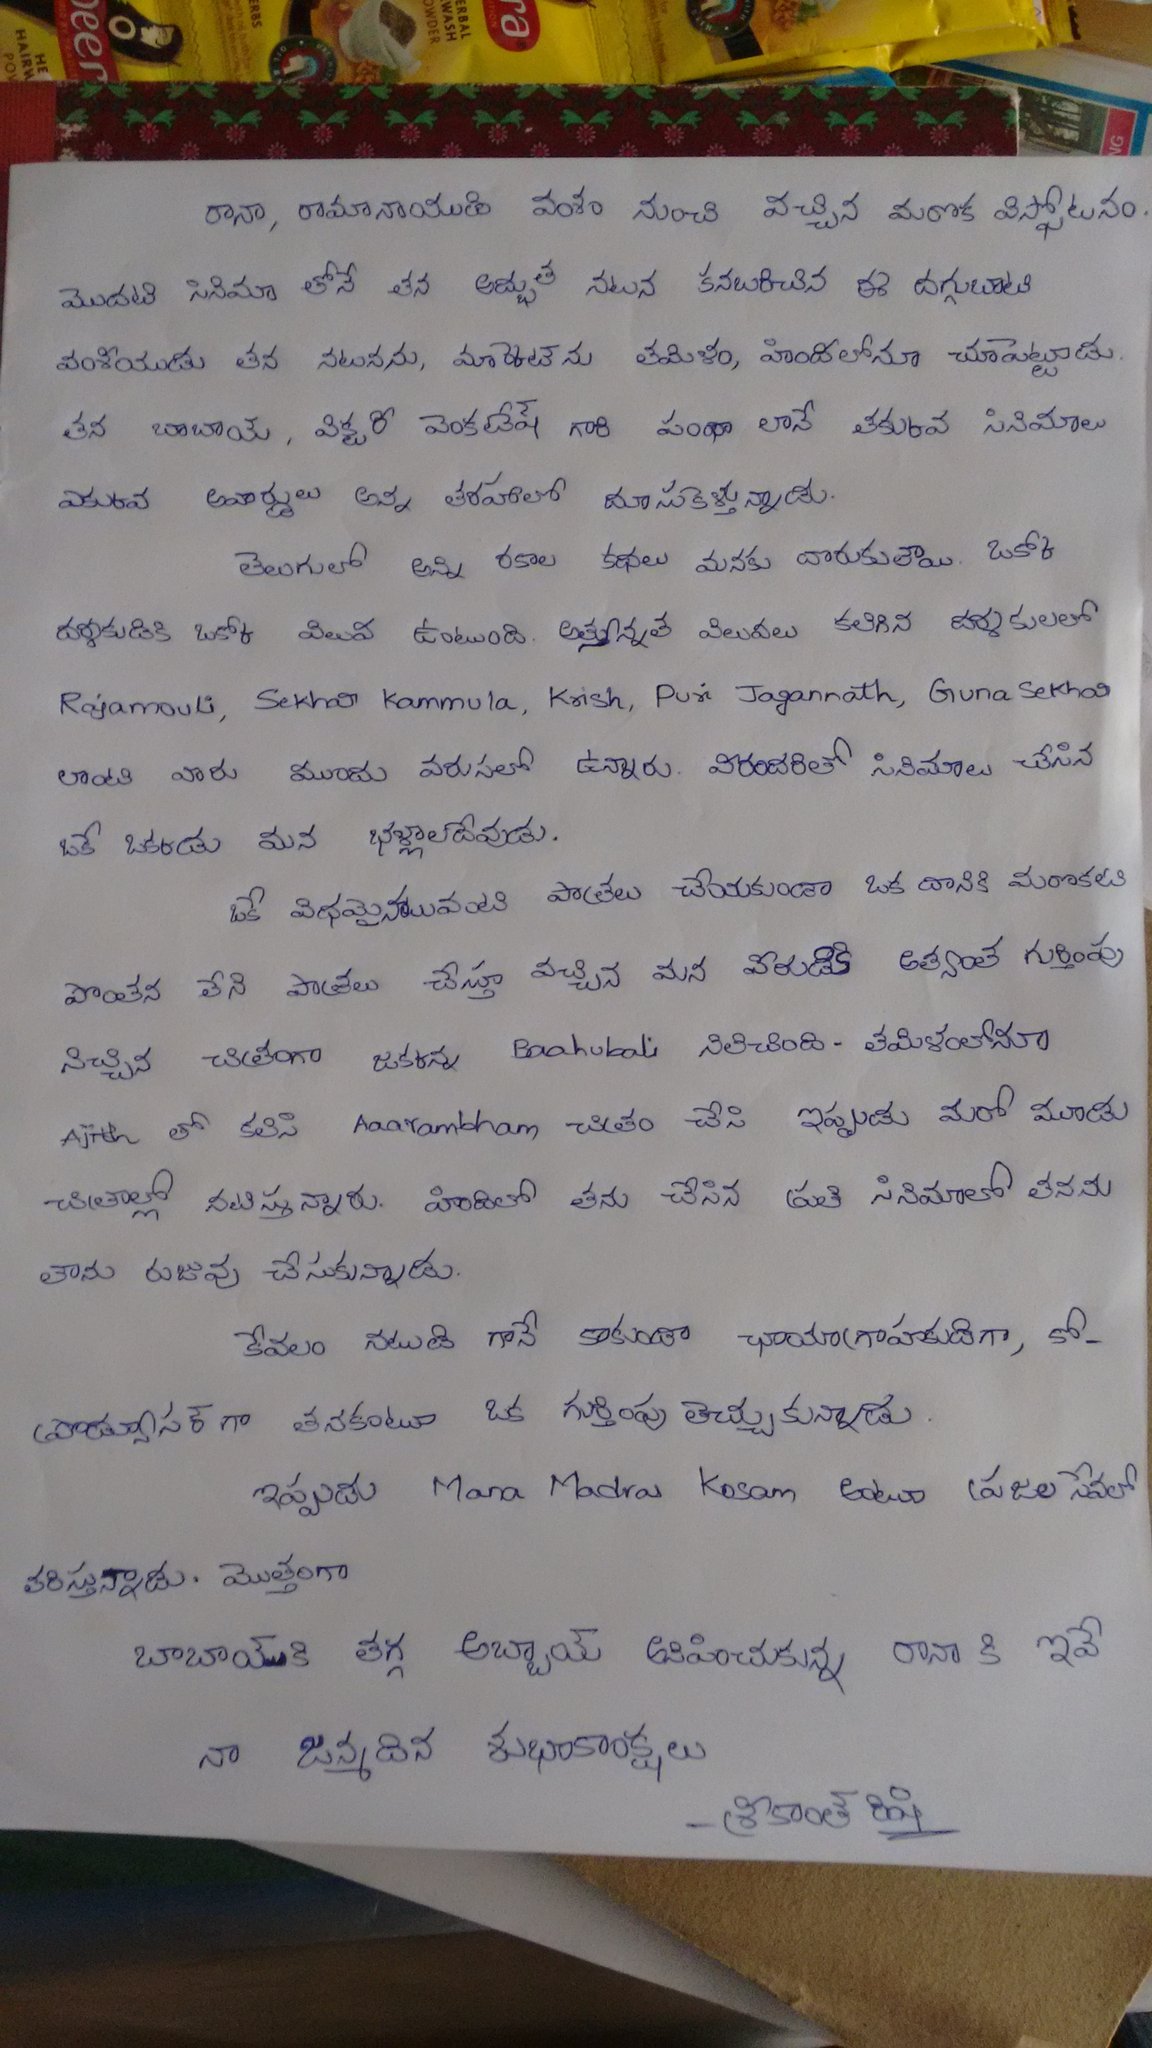 Meera
HERBAL
HAIRWASH
POWDER
HERBS
ERBAL
WASH
OWDER
era
NG
రానా, రామానాయుడి వంశం నుంచి వచ్చిన మరొక విస్ఫోటనం.
మొదటి సినిమా తోనే తన అద్భుత నటన కనబరిచిన ఈ దగ్గుబాటి
వంశీయుడు తన నటనను, మార్కెట్‌ను తమిళం, హిందీలోనూ చూపెట్టాడు.
తన బాబాయ్, విక్టరీ వెంకటేష్ గారి పంథా లానే తక్కువ సినిమాలు
ఎక్కువ అవార్డులు అన్న తరహాలో దూసుకెళ్తున్నాడు.
తెలుగులో అన్ని రకాల కథలు మనకు దొరుకుతాయి. ఒక్కో
దర్శకుడికి ఒక్కో విలువ ఉంటుంది. అత్యున్నత విలువలు కలిగిన దర్శకులలో
Rajamouli, Sekhar Kammula, Krish, Puri Jagannath, Guna Sekhar
లాంటి వారు ముందు వరుసలో ఉన్నారు. వీరందరితో సినిమాలు చేసిన
ఒకే ఒక్కడు మన భళ్లాలదేవుడు.
ఒకే విధమైనటువంటి పాత్రలు చేయకుండా ఒక దానికి మరొకటి
పొంతన లేని పాత్రలు చేస్తూ వచ్చిన మన వీరుడికి అత్యంత గుర్తింపు
నిచ్చిన చిత్రంగా జక్కన్న Baahubali నిలిచింది - తమిళంలోనూ
Ajith తో కలిసి Aaarambham చిత్రం చేసి ఇప్పుడు మరో మూడు
చిత్రాల్లో నటిస్తున్నారు. హిందీలో తను చేసిన ప్రతి సినిమాలో తనను
తాను రుజువు చేసుకున్నాడు.
కేవలం నటుడి గానే కాకుండా ఛాయాగ్రాహకుడిగా, కో-
ప్రొడ్యూసర్ గా తనకంటూ ఒక గుర్తింపు తెచ్చుకున్నాడు.
ఇప్పుడు Mana Madras Kosam అంటూ ప్రజల సేవలో
తరిస్తున్నాడు. మొత్తంగా
బాబాయ్‌కి తగ్గ అబ్బాయ్ అనిపించుకున్న రానా కి ఇవే
నా జన్మదిన శుభాకాంక్షలు
- శ్రీకాంత్ రిషి